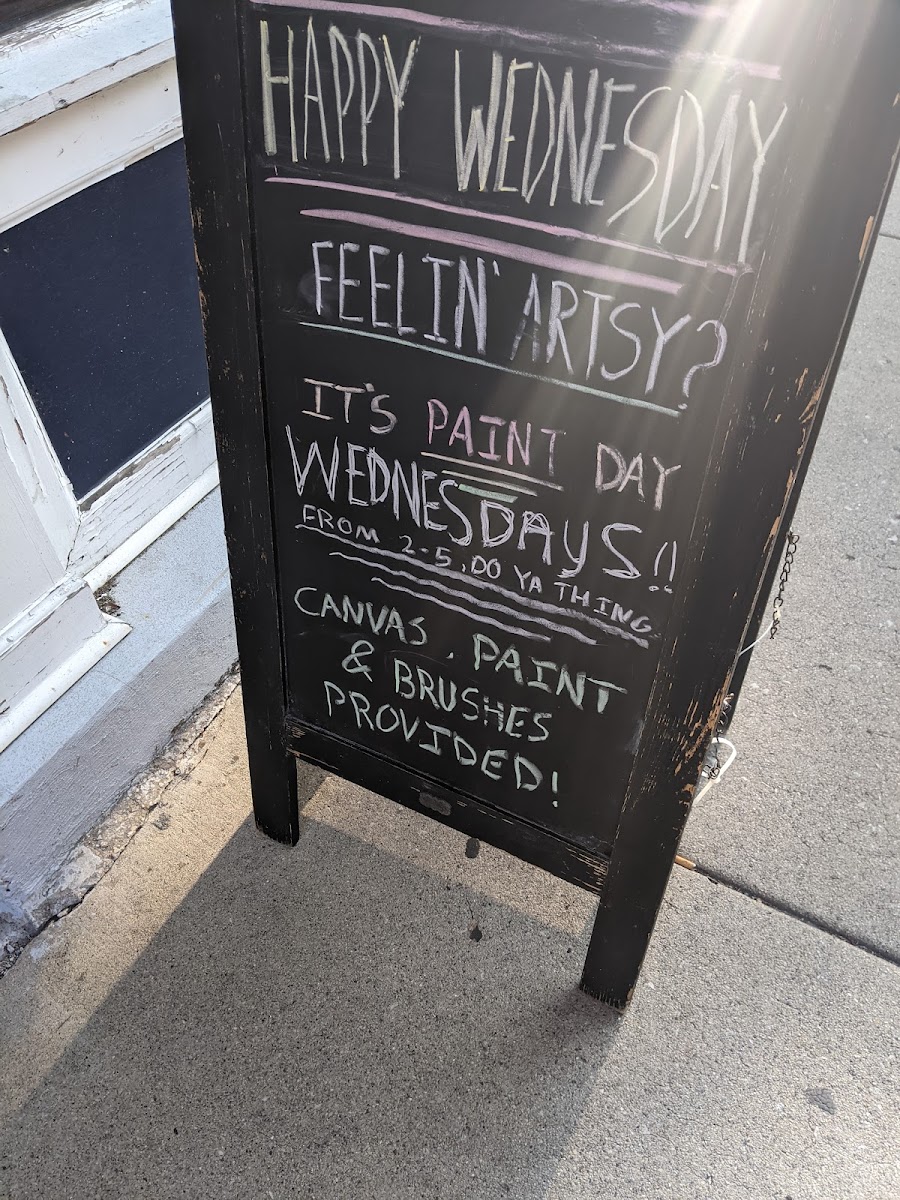 HAPPY WEDNESDAY
FEELIN' ARTSY?
IT'S PAINT DAY
WEDNESDAYS!!
FROM 2-5, DO YA THING
CANVAS, PAINT
& BRUSHES
PROVIDED!